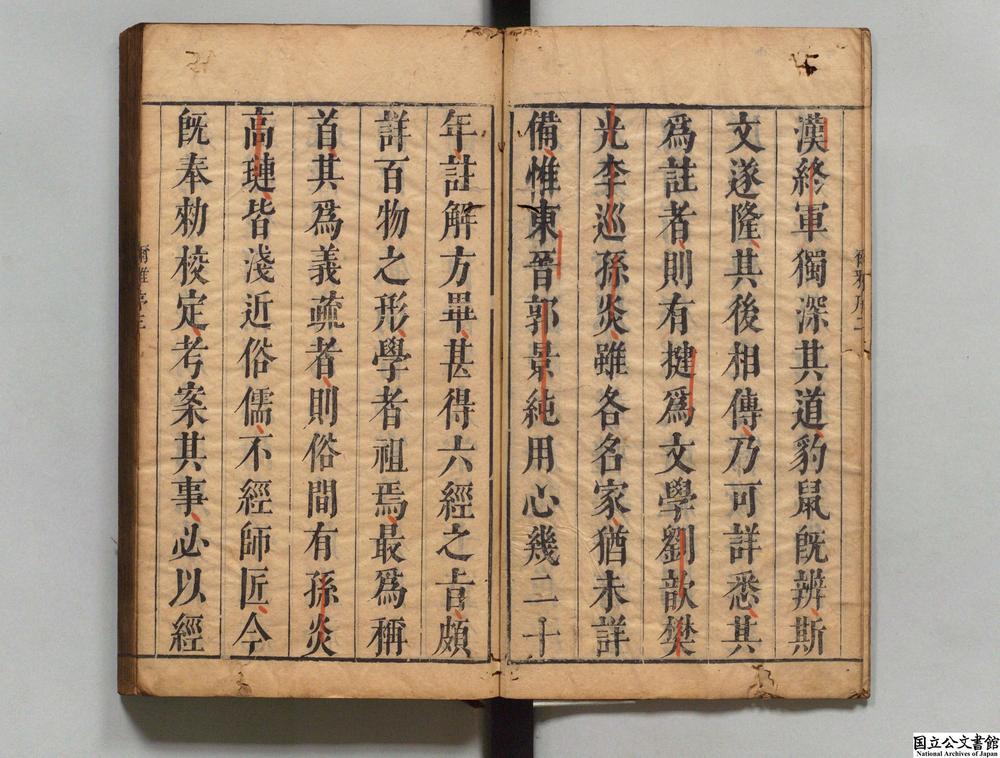 漢終軍獨深其道豹鼠旣辨斯
文遂隆其後相傳乃可詳悉其
爲註者則有揵爲文學劉歆樊
光李巡孫炎雖各名家猶未詳
備惟東晉郭景純用心幾二十
年註解方畢甚得六經之旨頗
詳百物之形學者祖焉最爲稱
首其爲義疏者則俗間有孫炎
高璉皆淺近俗儒不經師匠今
旣奉勑校定考案其事必以經
爾雅序二
爾雅序三
国立公文書館
National Archives of Japan